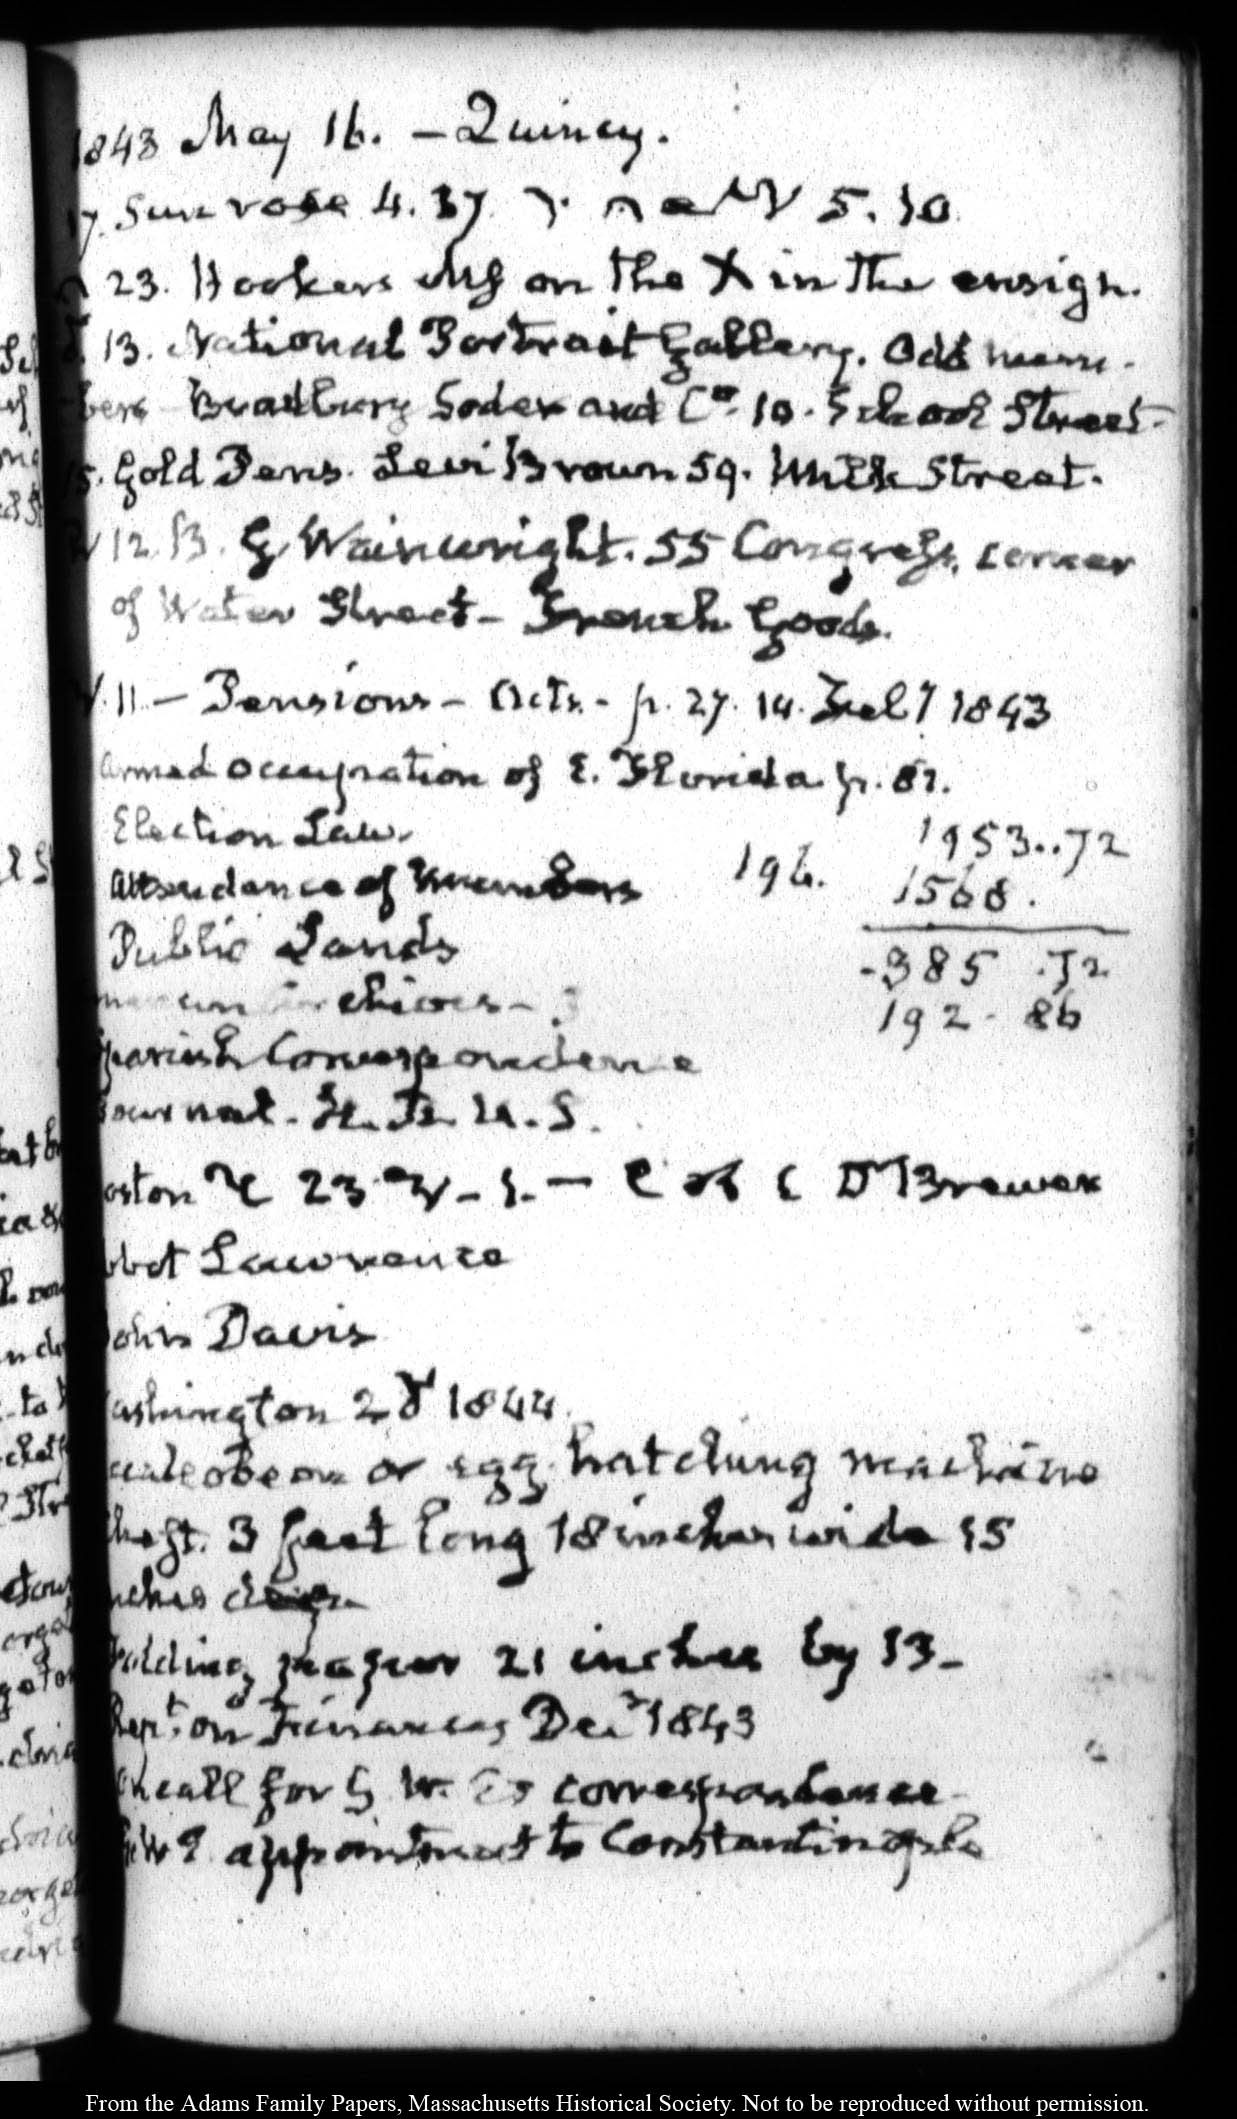 1843 May 16. – Quincy.
17. Sun rose 4.37. 5.10
23. Hookers on the X in the ensign.
13. National Portrait Gallery. Odd num-
bers Bradbury Soden and Co. 10. School Street.
15. Gold Pens. Levi Brown 59. Milk Street.
12. B. G Wainwright. 55 Congress, corner
of Water Street – French Goods.
11 – Pensions – Acts. – p. 27. 1843
Armed occupation of E. Florida p. 
Election Law.
1953..72
Attendance of Members
196.
1568.
Public Lands
-385 .72
192. 86
Spanish Correspondence
Journal. H. R. U. S.
oston 23 – C of C Brewer
bbot Lawrence
John Davis
ashington 2 1844
or egg hatching machine
3 feet long 18 inches wide 15
nches
Folding paper 21 inches by 13 –
Rept. on Finances Dec 1843
call for G W. correspondence
appointment to Constantinople
From the Adams Family Papers, Massachusetts Historical Society. Not to be reproduced without permission.